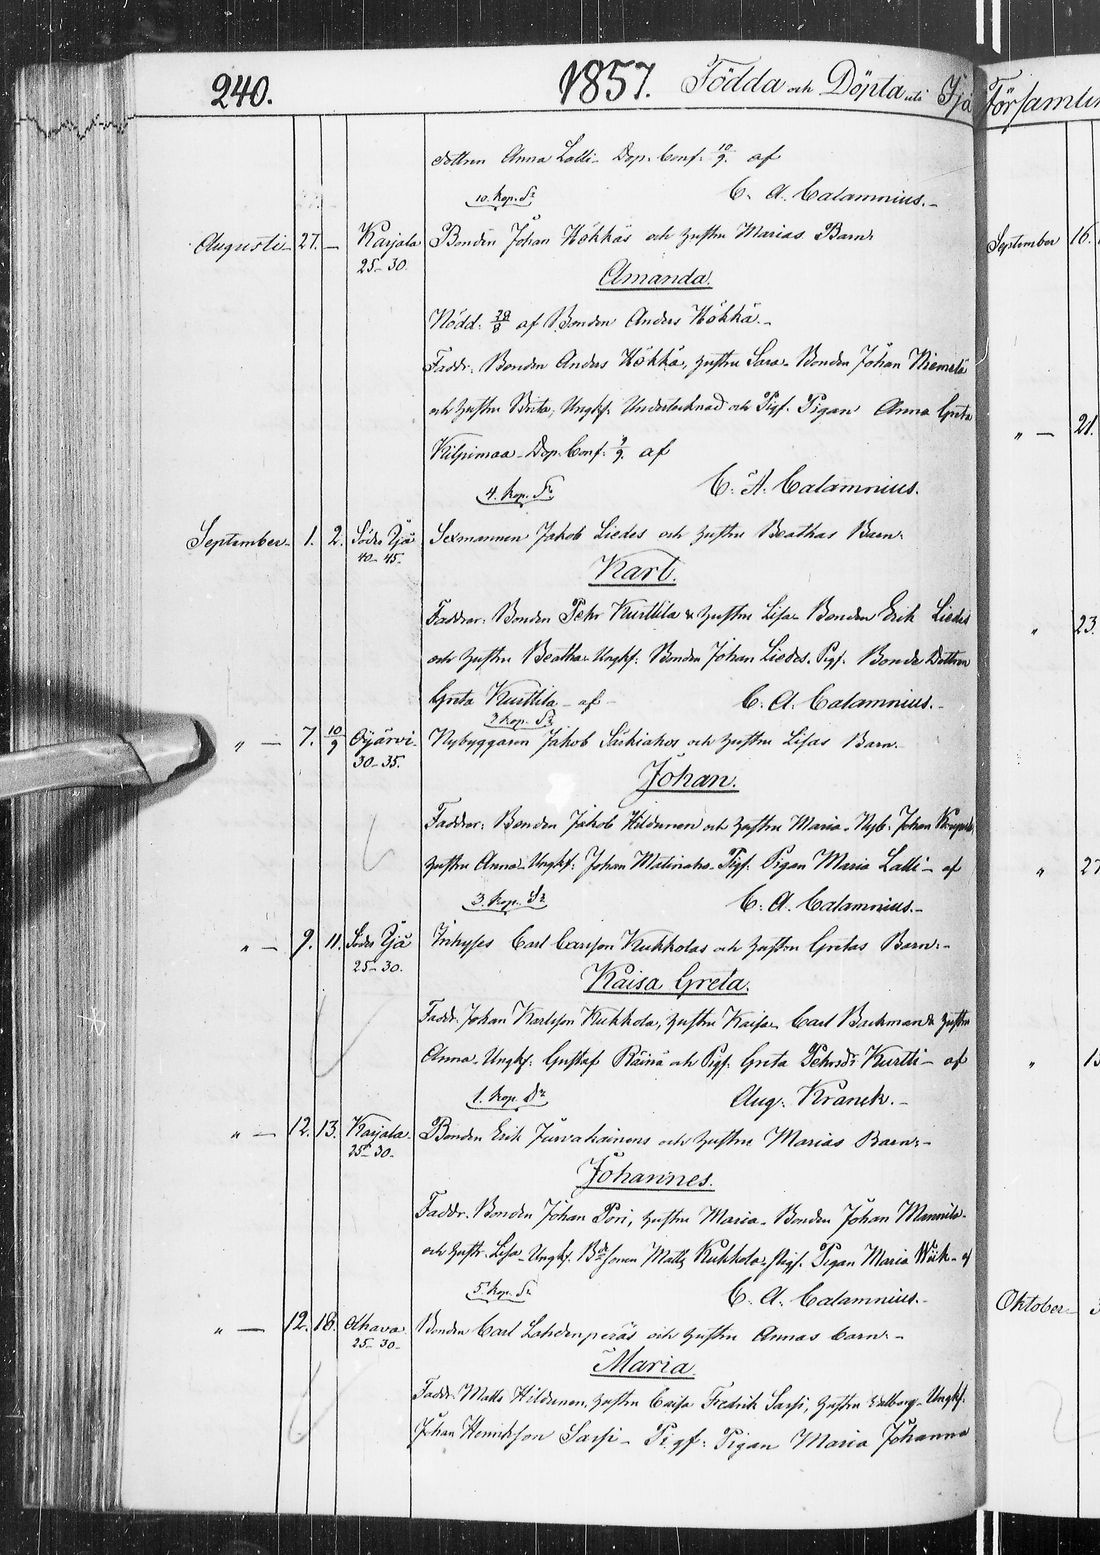 240. 1857. Födda och Döpta uti Ijå
dottren Anna Lalli - Dop. Conf. 10/9. af
10. Kop. Sr C. A. Calamnius.-
Augusti - 27. - Karjala Bonden Johan Hökkäs och hustru Marias Barn:
25-30.
Amanda.
Nödd. 28/8 af Bonden Anders Hökkä.-
Faddr. Bonden Anders Hökkä, hustru Sara - Bonden Johan Niemelä
och hustru Brita, Ungk. Undertecknad och Pigf. Pigan Anna Greta
Kilpimaa - Dop. Conf. 9/9. af
4. Kop. Sr C. A. Calamnius.
September - 1. 2. Söder Ijå Sexmannen Jakob Liedes och hustru Beathas Barn.
40-45.
Karl.
Faddrar: Bonden Pehr Kurttila & hustru Lisa - Bonden Erik Liedes
och hustru Beatha - Ungkf. Bonden Johan Liedes. Pigf. Bonde Dottren
Greta Kurttila - af C. A. Calamnius.-
2 Kop. Sr
" - 7. 10/9 Oijärvi Nybyggaren Jakob och hustru Lisas Barn.
30-35.
Johan.
Faddrar: Bonden Jakob Hildunen och hustru Maria - Nyb. Johan
hustru Anna - Ungkf. Johan Pigf. Pigan Maria Lalli - af
3. Kop. Sr C. A. Calamnius.-
" - 9. 11. Söder Ijå Inhyses Carl Carlsson Kukkolas och hustru Gretas Barn:-
25-30.
Kaisa Greta.
Faddr. Johan Karlsson Kukkola, hustru Kaisa - Carl Backman & hustru
Anna - Ungkf. Gustaf Räinä och Pigf. Greta Pehrsdr Kurtti - af
1. Kop. Dr Aug. Kranck.-
" - 12. 13. Karjala Bonden Erik Jurvakainens och hustru Marias Barn:-
25-30-
Johannes.
Faddr. Bonden Johan Pori, hustru Maria - Bonden Johan Mannila
och hustr. Lisa - Ungkf. Bde sonen Matts Kukkola - Pigf. Pigan Maria - af
5. Kop. Sr C. A. Calamnius.-
" - 12. 18. Alhava Bonden Carl Lahdenperäs och hustru Annas barn:-
25-30-
Maria.
Faddr. Matts Hildunen, hustru Caisa Fredrik Sassi, hustru Walborg - Ungkf.
Johan Henriksson Sassi - Pigf: Pigan Maria Johanna
Församlin
September 16.
" - 21.
" 23.
" 27
"
Oktober -